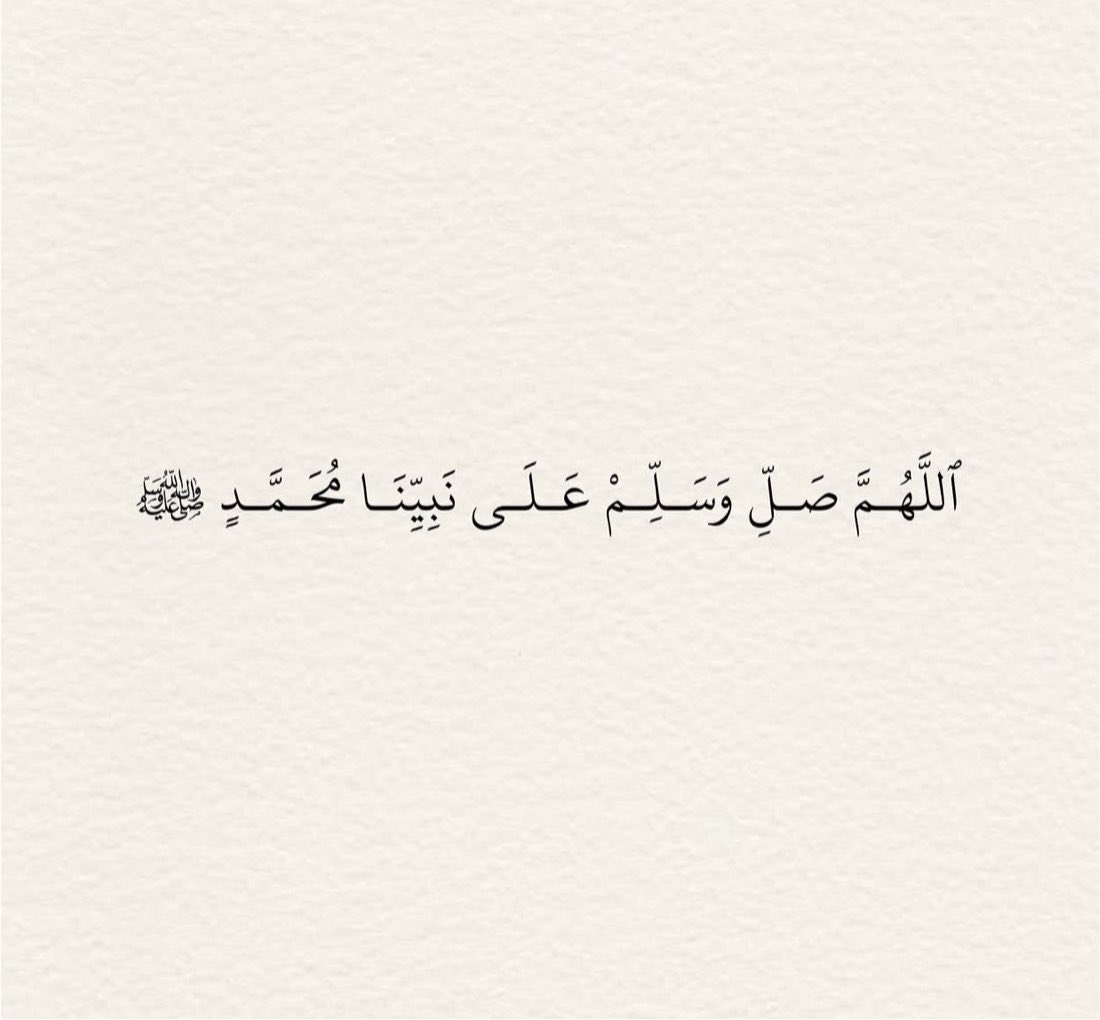 ٱللَّهُـمَّ صَـلِّ وَسَـلِّـمْ عَـلَـى نَبِيِّنَـا مُحَـمَّـدٍ ﷺ